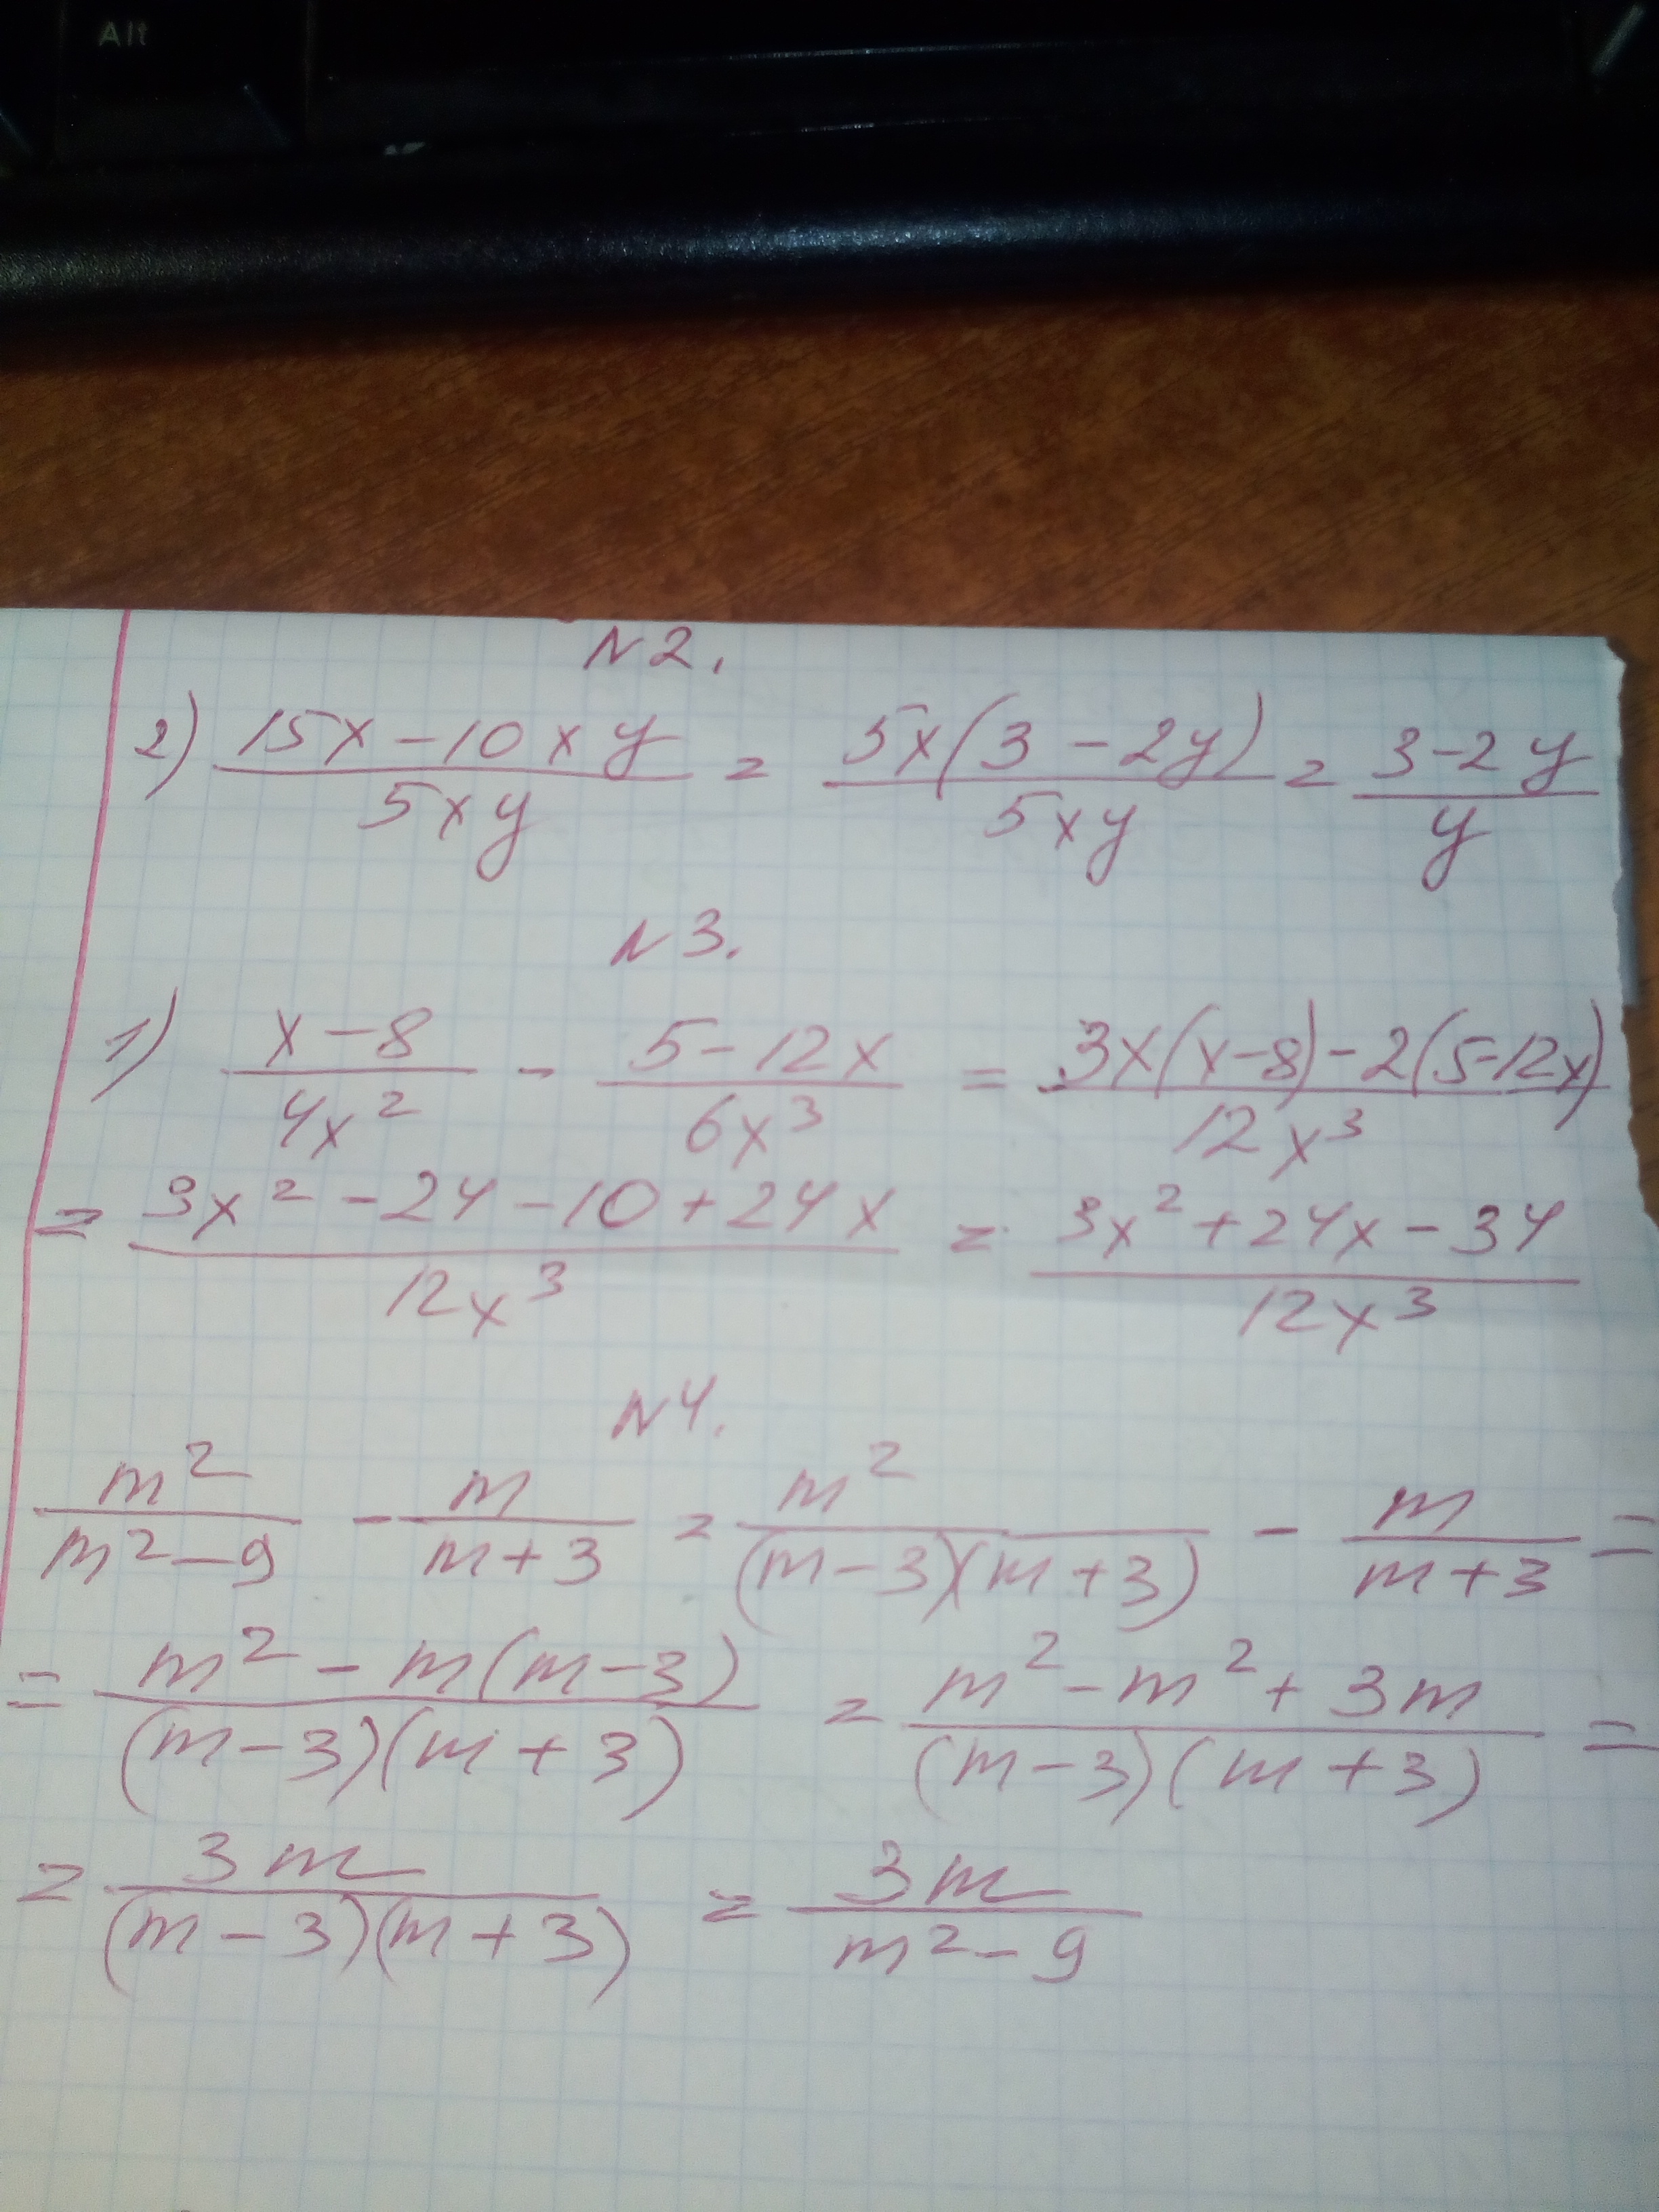 Alt
N2.
2) (15x-10xy)/(5xy) = (5x(3-2y))/(5xy) = (3-2y)/y
N3.
1) (x-8)/(4x²) - (5-12x)/(6x³) = (3x(x-8)-2(5-12x))/(12x³)
= (3x²-24-10+24x)/(12x³) = (3x²+24x-34)/(12x³)
N4.
m²/(m²-9) - m/(m+3) = m²/((m-3)(m+3)) - m/(m+3) =
= (m²-m(m-3))/((m-3)(m+3)) = (m²-m²+3m)/((m-3)(m+3)) =
= 3m/((m-3)(m+3)) = 3m/(m²-9)